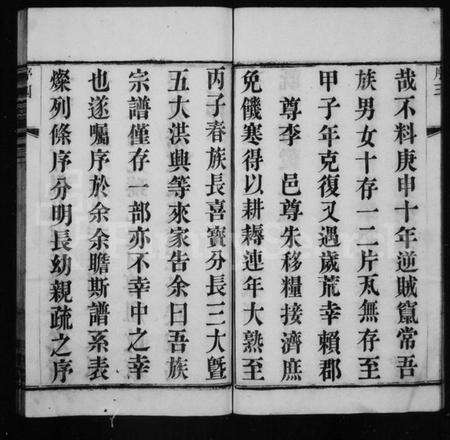 序三
哉不料庚申十年逆賊竄常吾
族男女十存一二片瓦無存至
甲子年克復又遇歲荒幸賴郡
尊李 邑尊朱移糧接濟庶
免饑寒得以耕耨連年大熟至
丙子春族長喜寶分長三大暨
五大洪典等來家告余曰吾族
宗譜僅存一部亦不幸中之幸
也遂囑序於余余瞻斯譜系表
燦列條序分明長幼親疏之序
序四